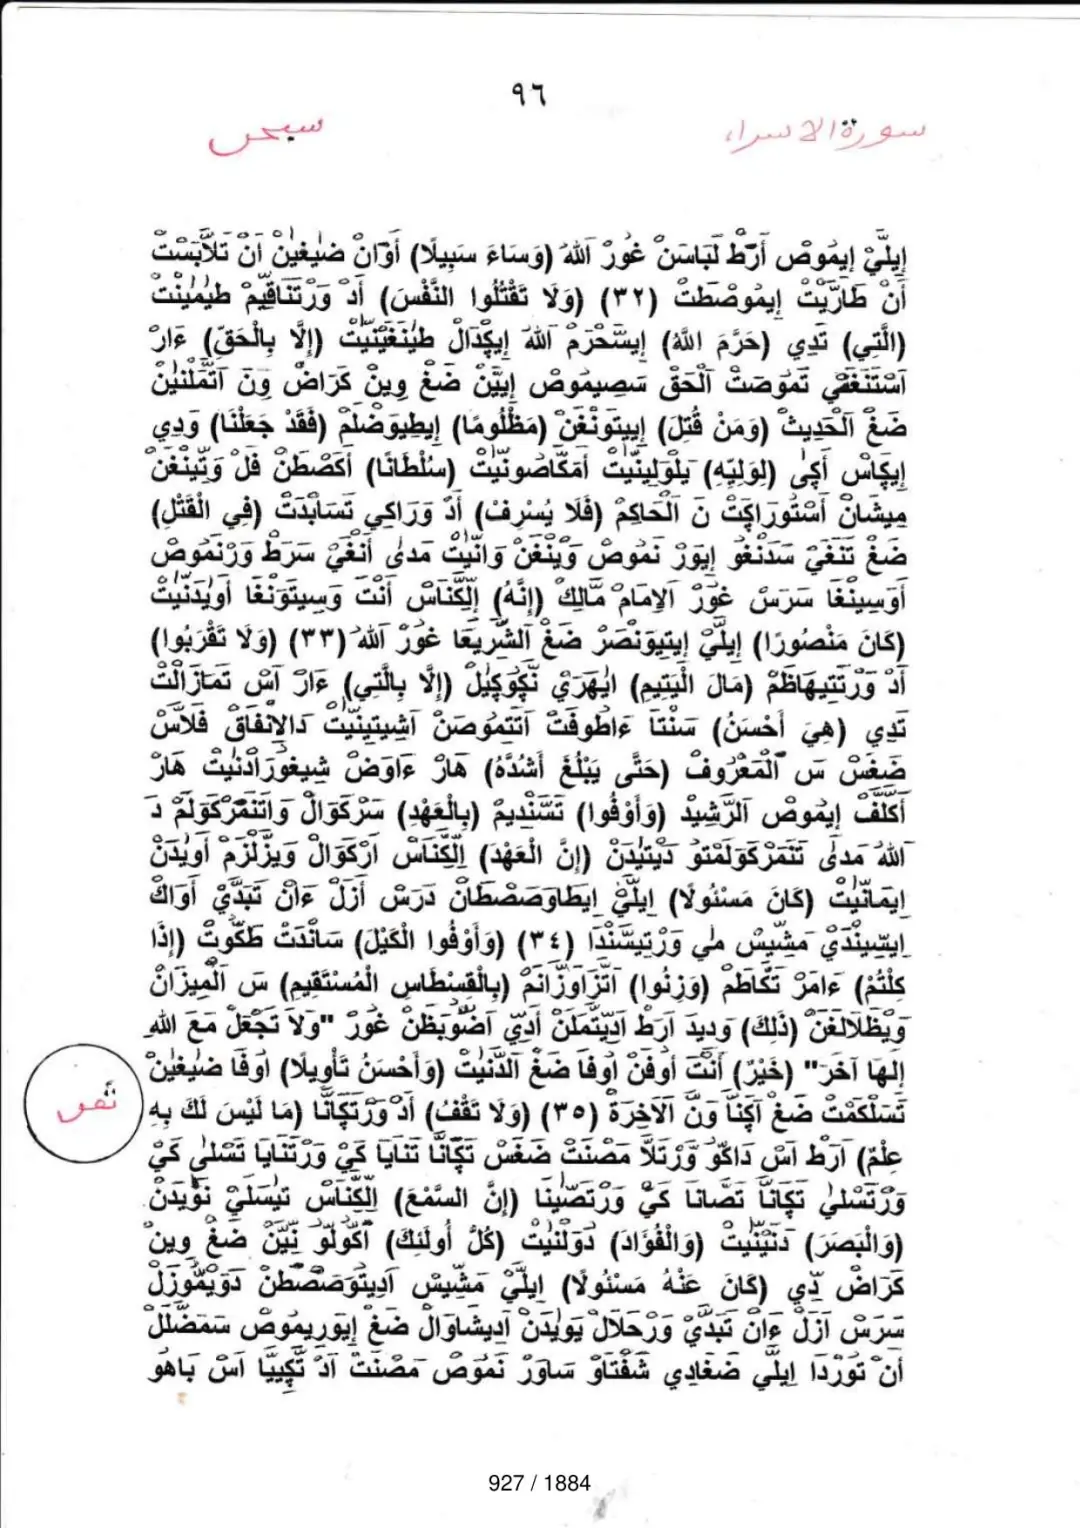 ٩٦
سورة الاسراء
سبحن
إِيلَيْ إِيمُوصْ أَرَطْ لَبَاسَنْ غُورْ اَللهُ (وَسَاءَ سَبِيلًا) أَوَانْ ضَيغَينْ اَنْ تَلَّابَسْتْ
أَنْ طَارَيْتْ إِيمُوصْطَتْ (٣٢) (وَلَا تَقْتُلُوا النَّفْسَ) أَدْ وَرْتَنَاقِّيمْ طَيْمَيْنَتْ
(الَّتِي) تَدِي (حَرَّمَ اللَّهُ) إِيسَّحْرَمْ اَللهُ إِيكْدَالْ طَيْنَغَيْنَّيتْ (إِلَّا بِالْحَقِّ) ءَارْ
اَسْتَنَغَّيْ تَمُوصَتْ اَلْحَقْ سَصِيمُوصْ إِيَيَّنْ ضَغْ وِينْ كَرَاضْ وِنَ اَتَّمَلْنَيْنْ
ضَغْ اَلْحَدِيثْ (وَمَنْ قُتِلَ) إِييَتَوَنْغَنْ (مَظْلُومًا) إِيطَيوَضْلَمْ (فَقَدْ جَعَلْنَا) وَدِي
إِيكَّاسْ اَكَىٰ (لِوَلِيِّهِ) يَلْوَلِينَّيتْ اَمَكَّاصُونَّيتْ (سُلْطَانًا) اَكَصْطَنْ فَلْ وَتَّينْغَنْ
مِيشَانْ اَسْتُورَاكِّتْ نَ اَلْحَاكِمْ (فَلَا يُسْرِفْ) اَدْ وَرَاكِي تَسَابْدَتْ (فِي الْقَتْلِ)
ضَغْ تَنَغَيْ سَدَنْغُو إِيوَرْ نَمُوصْ وَيَنْغَنْ وَانَّيتْ مَدَىٰ أَنْغَيْ سَرَطْ وَرْنَمُوصْ
أَوَسِينْغَا سَرَسْ غُورْ اَلإِمَامْ مَّالِكْ (إِنَّهُ) اِلَكَّنَاسْ اَنْتْ وَسِيتَوَنْغَا أَوَيَدَنَّيتْ
(كَانَ مَنْصُورًا) إِيلَيْ إِيتِيوَنْصَرْ ضَغْ اَلشَّرِيعَا غُورْ اَللهُ (٣٣) (وَلَا تَقْرَبُوا)
اَدْ وَرْتَتِيهَاظَمْ (مَالَ الْيَتِيمِ) اَيْهَرَيْ نَّكُوكِيلْ (إِلَّا بِالَّتِي) ءَارْ اَسْ تَمَازَالْتْ
تَدِي (هِيَ أَحْسَنُ) سَنْتَا ءَاطُوفَتْ اَتَتَمُوصَنْ اَشِيتِينَّيتْ دَالإِنْفَاقْ فَلَّاسْ
ضَغَسْ سَ اَلْمَعْرُوفْ (حَتَّى يَبْلُغَ أَشُدَّهُ) هَارْ ءَاوَضْ شِيغُورَادْنَيتْ هَارْ
اَكَلَّفْ إِيمُوصْ اَلرَّشِيدْ (وَأَوْفُوا) تَسَّنْدِيمْ (بِالْعَهْدِ) سَرْكَوَالْ وَاتَتَمَّرْكَوَلَمْ دَ
اَللهُ مَدَىٰ تَنَمَرْكَوَلَمْتُو دَيْتَيْدَنْ (إِنَّ الْعَهْدَ) اِلَكَّنَاسْ اَرْكَوَالْ وَيَزَّلْزَمْ أَوَيَدَنْ
إِيمَانَّيتْ (كَانَ مَسْئُولًا) إِيلَيْ إِيطَاوَصَصْطَانْ دَرَسْ أَزَلْ ءَانْ تَبَدَّيْ أَوَاكْ
اِيسَّينْدَيْ مَشِّيسْ مَىٰ وَرْتِيسَّنْدَا (٣٤) (وَأَوْفُوا الْكَيْلَ) سَانْدَتْ طَكُّوتْ (إِذَا
كِلْتُمْ) ءَامَرْ تَكَّاطَمْ (وَزِنُوا) اَتَّزَاوَزَانَمْ (بِالْقِسْطَاسِ الْمُسْتَقِيمِ) سَ اَلْمِيزَانْ
وَيَظَّلَالَغَنْ (ذَلِكَ) وَدِيدَ اَرَطْ اَدِيتَّمَلَنْ أَدِي اَضُّوبَظَنْ غُورْ "وَلاَ تَجْعَلْ مَعَ اللهِ
إِلَهًا آخَرَ" (خَيْرٌ) أَنْتْ أُوفَنْ أُوفَا ضَغْ اَلدَّنْيتْ (وَأَحْسَنُ تَأْوِيلًا) أُوفَا ضَيْغَيْنْ
تَسَلْكَمْتْ ضَغْ اَكَنَّا وَنَّ اَلآخِرَةْ (٣٥) (وَلَا تَقْفُ) اَدْ وَرْتَكَّانَّا (مَا لَيْسَ لَكَ بِهِ
ثقف
عِلْمٌ) اَرَطْ اَسْ دَاكُو وَرْتَلَّا مَصْنَتْ ضَغَسْ تَكَّانَّا تَنَايَا كَيْ وَرْتَنَايَا تَسْلَىٰ كَيْ
وَرْتَسْلَىٰ تَكَّانَّا تَصَّانَا كَيْ وَرْتَصَّينَا (إِنَّ السَّمْعَ) اِلَكَّنَاسْ تَيْسَلَيْ نَوَيَدَنْ
(وَالْبَصَرَ) دَنَيْنَّيتْ (وَالْفُؤَادَ) دَوَلْنَيتْ (كُلُّ أُولَئِكَ) اَكُّولُّو نِيَّنْ ضَغْ وِينْ
كَرَاضْ دِّي (كَانَ عَنْهُ مَسْئُولًا) إِيلَيْ مَشِّيسْ اَدِيتُوَصَصْطَنْ دَوَيْمُّوزَلْ
سَرَسْ اَزَلْ ءَانْ تَبَدَّيْ وَرْحَلَالْ يَوَيَدَنْ اَدِيشَاوَالْ ضَغْ إِيوَرِيمُوصْ سَمَضْلَلْ
أَنْ تُورْدَا إِيلَّيْ ضَغَادِي شَفْتَاوْ سَاوَرْ نَمُوصْ مَصْنَتْ اَدْ تَّكِيَّا اَسْ بَاهُو
927 / 1884